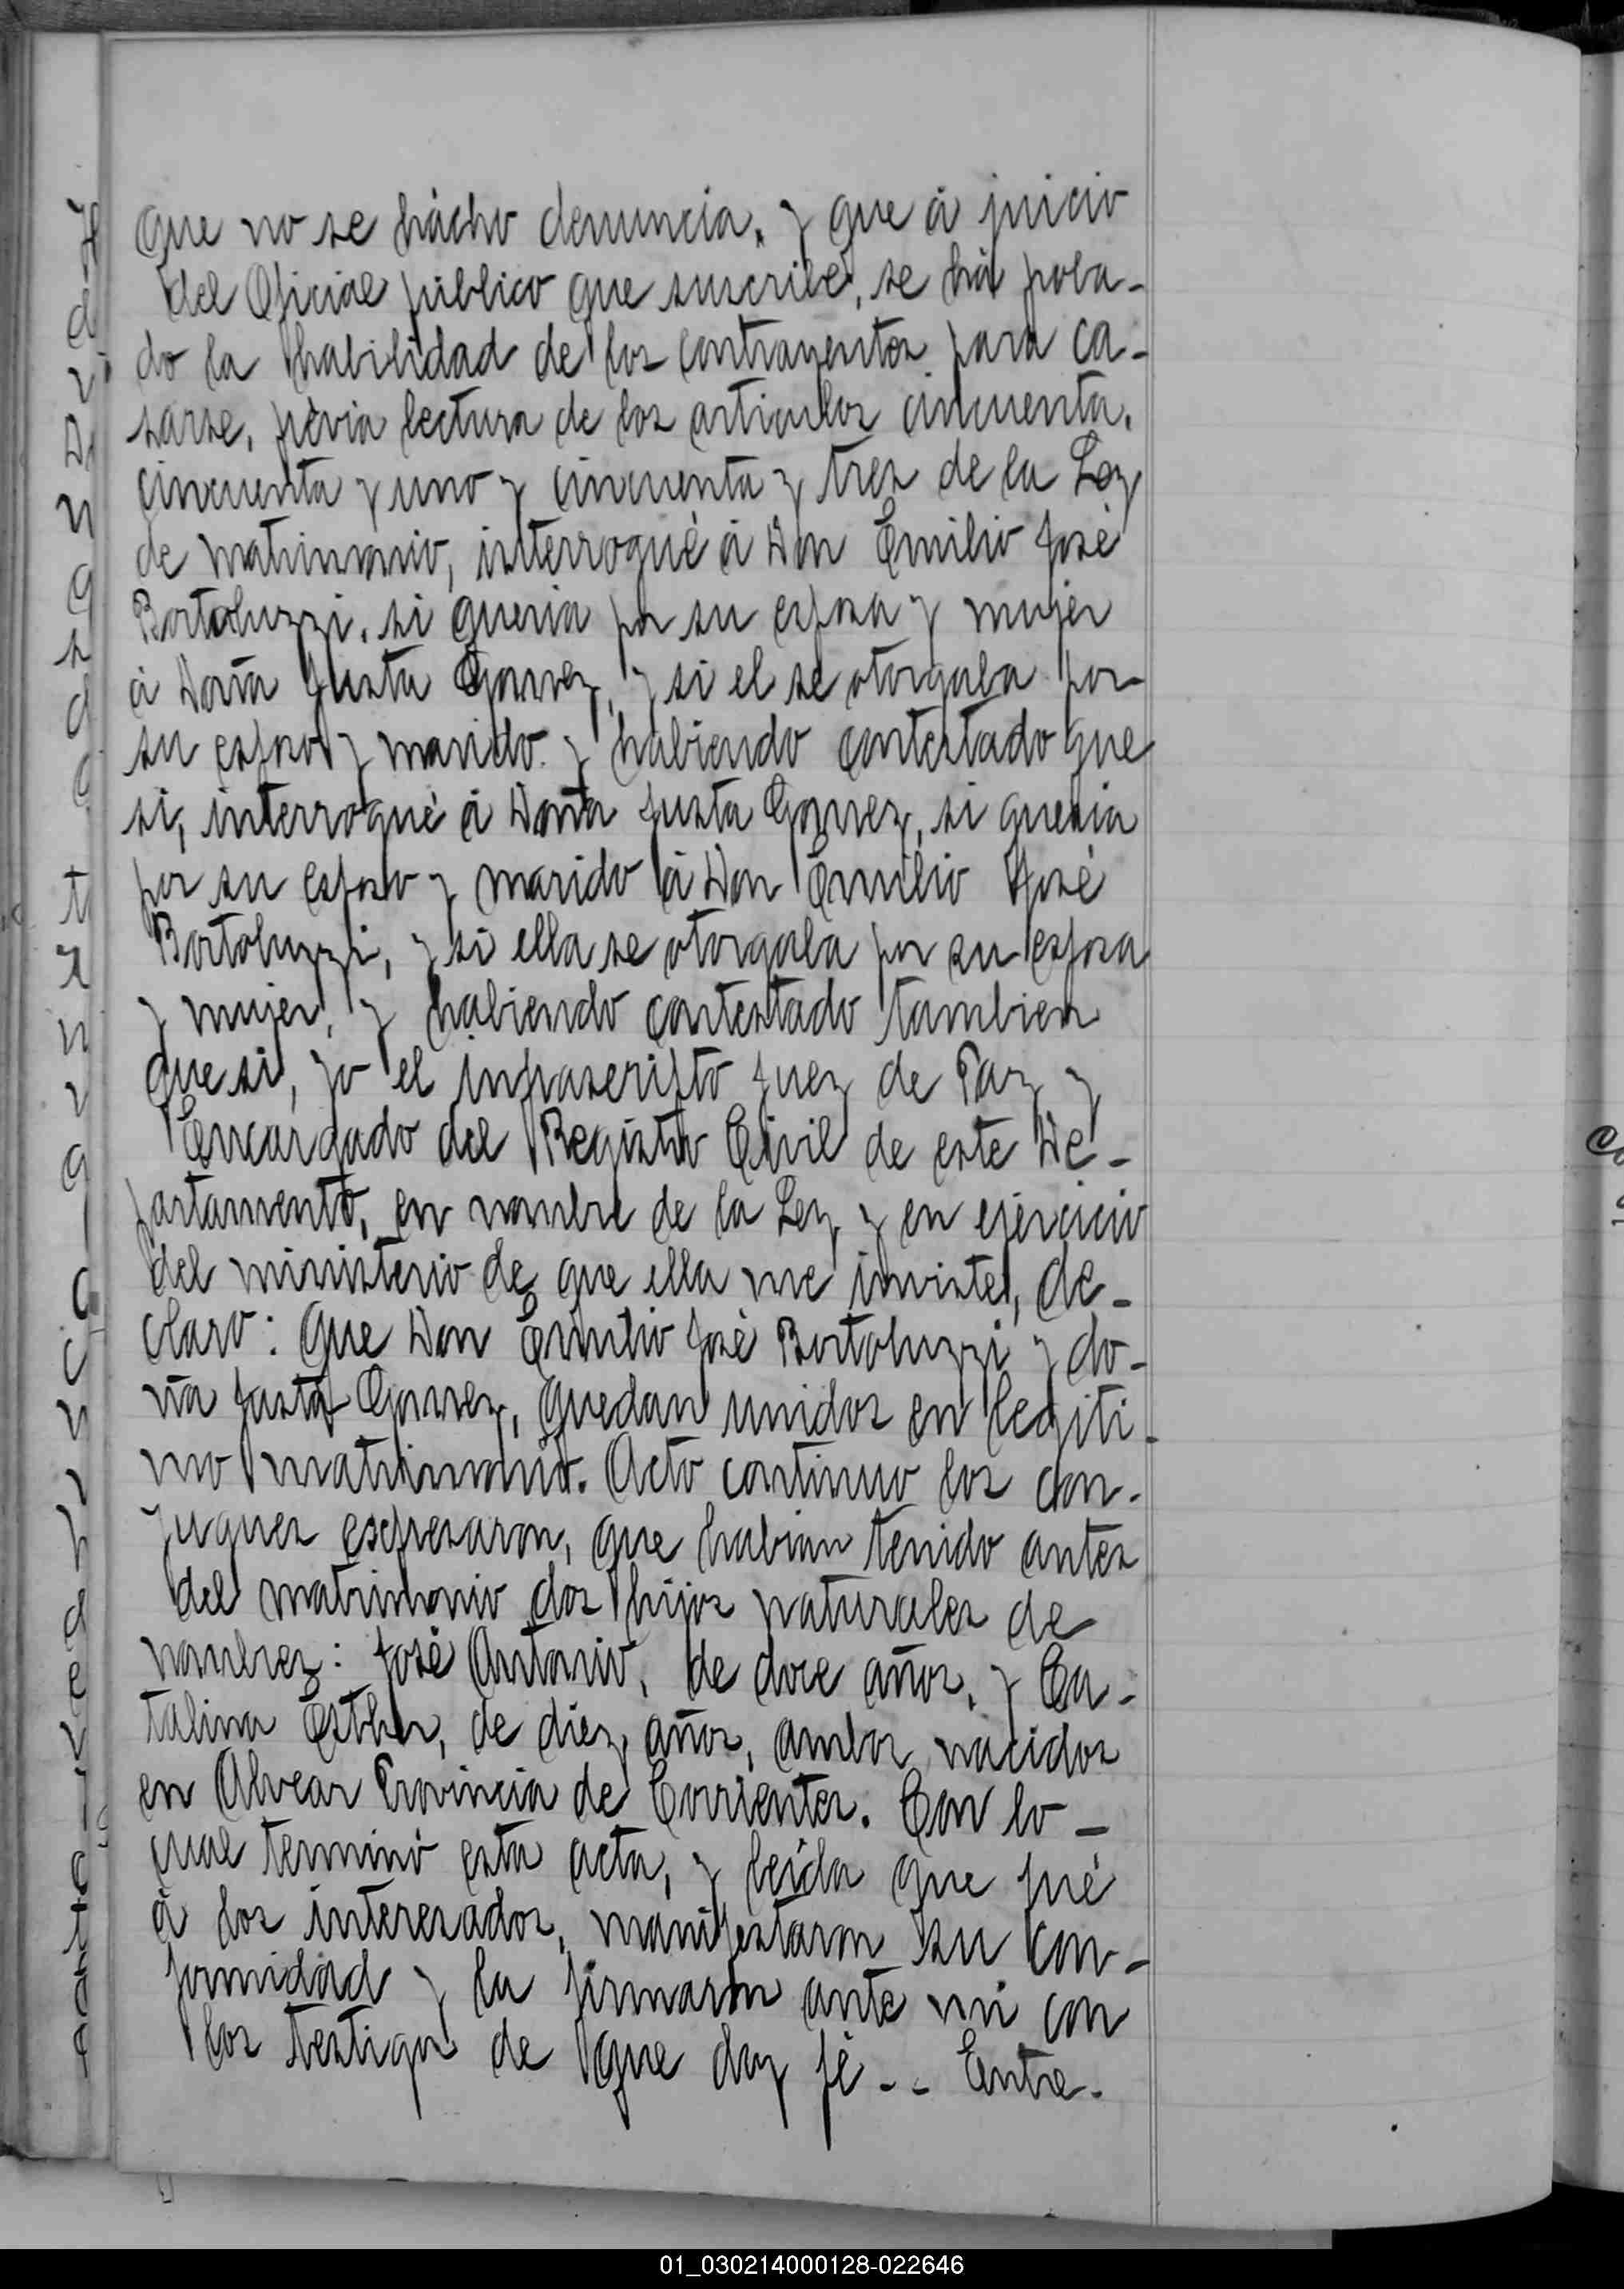 que no se hácho denuncia, y que á juicio
del Oficial público que suscribe, se há proba-
do la habilidad de los contrayentes para ca-
sarse, prévia lectura de los articulos cincuenta,
cincuenta y uno y cincuenta y tres de la Ley
de matrimonio, interrogué á Don Emilio José
Bortoluzzi, si queria por su esposa y mujer
á Doña Justa Gomez, y si el se otorgaba por
su esposo y marido y habiendo contestado que
si, interrogué á Doña Justa Gomez, si queria
por su esposo y marido á Don Emilio José
Bortoluzzi, y si ella se otorgaba por su esposa
y mujer, y habiendo contestado tambien
que si, yo el infrascripto Juez de Paz y
Encargado del Registro Civil de este De-
partamento, en nombre de la Ley y en ejercicio
del ministerio de que ella me inviste, de-
claro: Que Don Emilio José Bortoluzzi y do-
ña Justa Gomez, quedan unidos en legiti-
mo matrimonio. Acto continuo los con-
yugues espresaron, que habian tenido antes
del matrimonio dos hijos naturales de
nombres: José Antonio, de doce años, y Ca-
talina Esther, de diez años, ambos nacidos
en Alvear Provincia de Corrientes. Con lo-
cual terminó esta acta, y leída que fué
á los interesados, manifestaron su con-
formidad y la firmaron ante mi con
los testigos de que doy fé-- Entre-
01_030214000128-022646